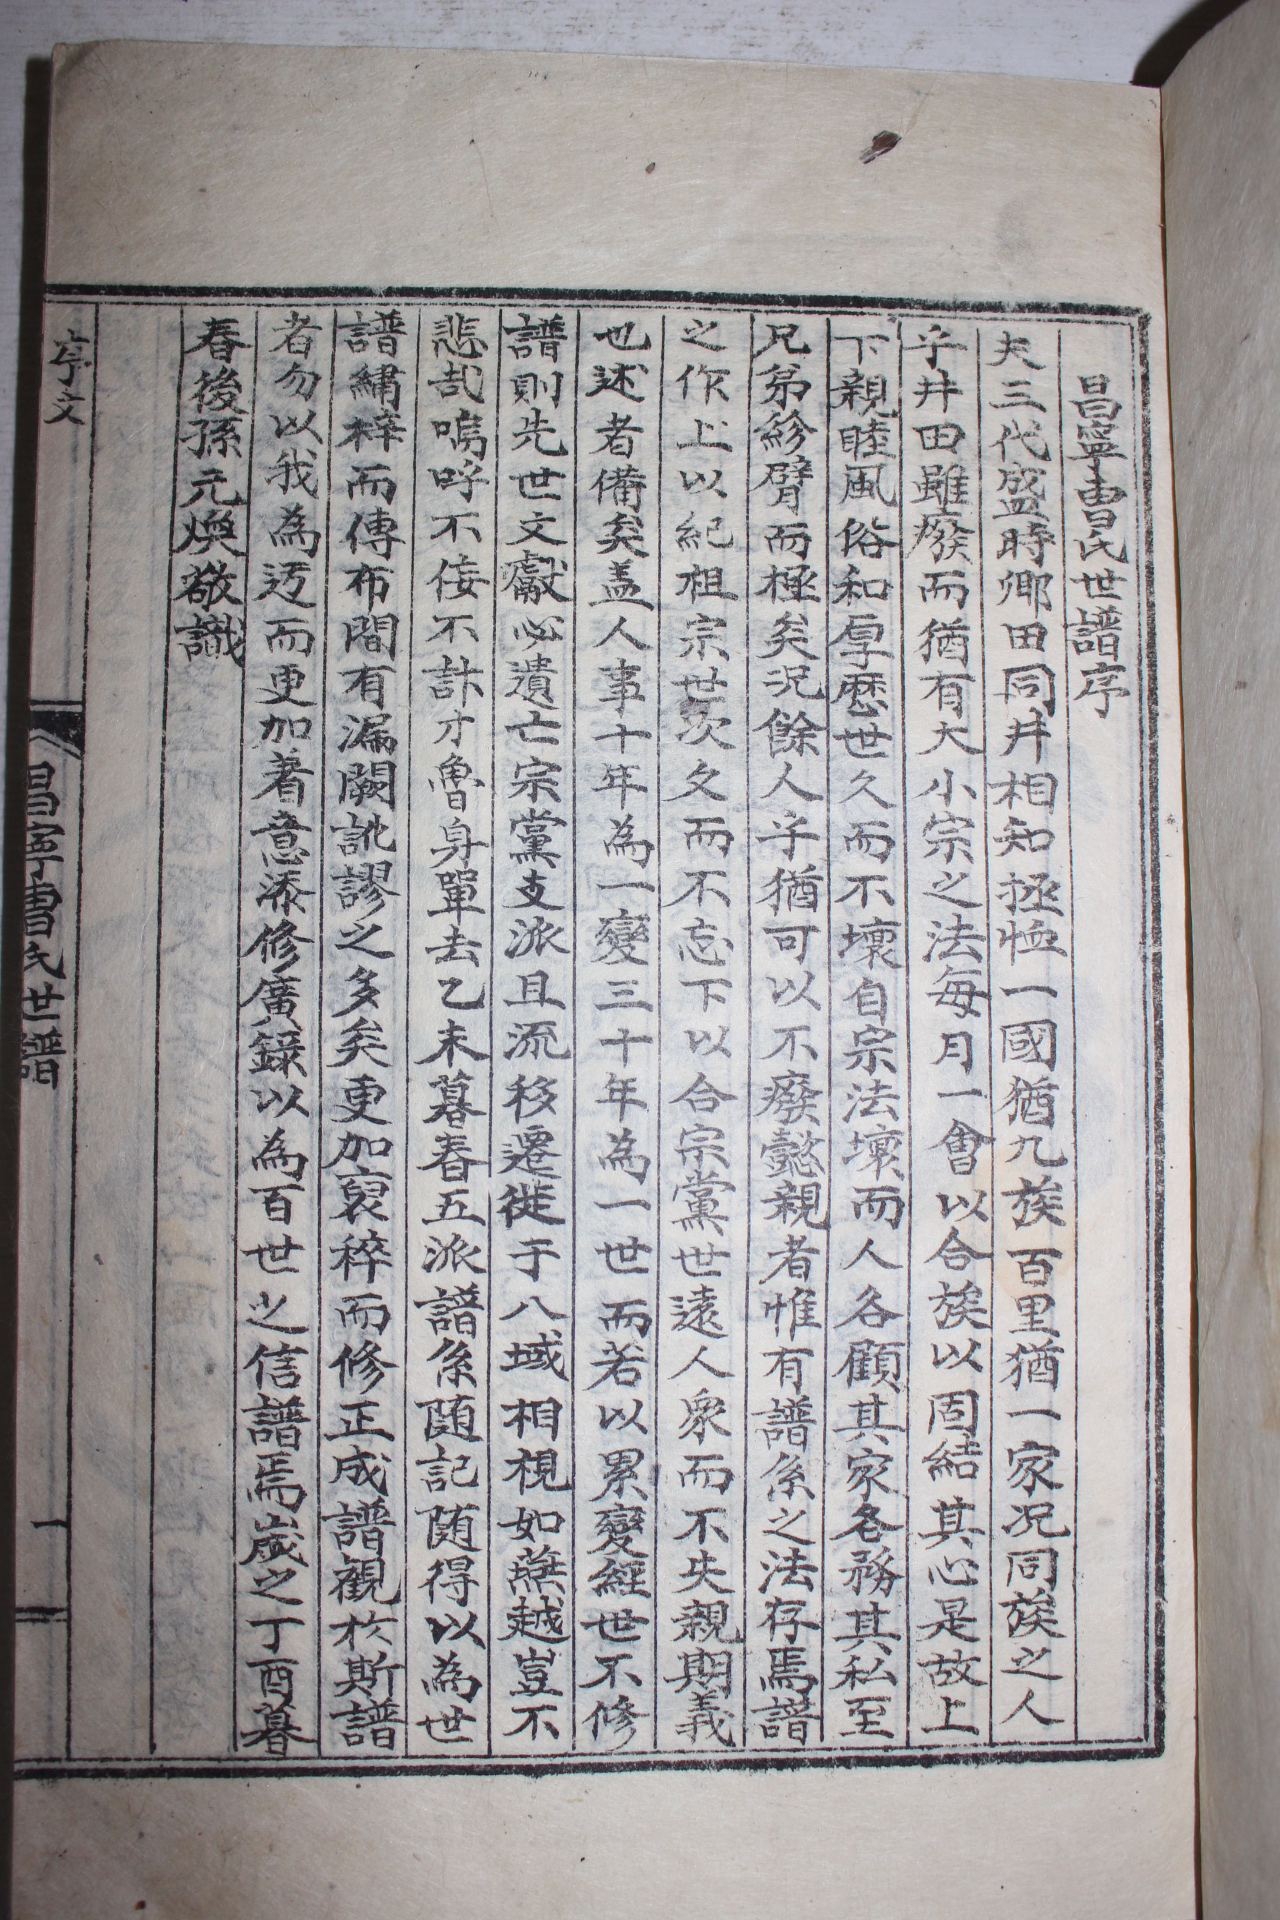 昌寧曺氏世譜序
夫三代盛時鄉田同井相知拯恤一國猶九族百里猶一家况同族之人
乎井田雖癈而猶有大小宗之法每月一會以合族以固結其心是故上
下親睦風俗和厚歷世久而不壞自宗法壞而人各顧其家各務其私至
兄弟紾臂而極矣况餘人乎猶可以不癈懿親者惟有譜係之法存焉譜
之作上以紀祖宗世次久而不忘下以合宗黨世遠人衆而不失親期義
也述者備矣盖人事十年為一變三十年為一世而若以累變經世不修
譜則先世文獻必遺亡宗黨支派且流移遷徙于八域相視如燕越豈不
悲哉嗚呼不佞不計才魯身單去乙未暮春五派譜係随記随得以為世
譜繡梓而傳布間有漏闕訛謬之多矣更加裒稡而修正成譜觀於斯譜
者勿以我為迃而更加着意添修廣錄以為百世之信譜焉歲之丁酉暮
春後孫元煥敬識
序文
昌寧曺氏世譜
一